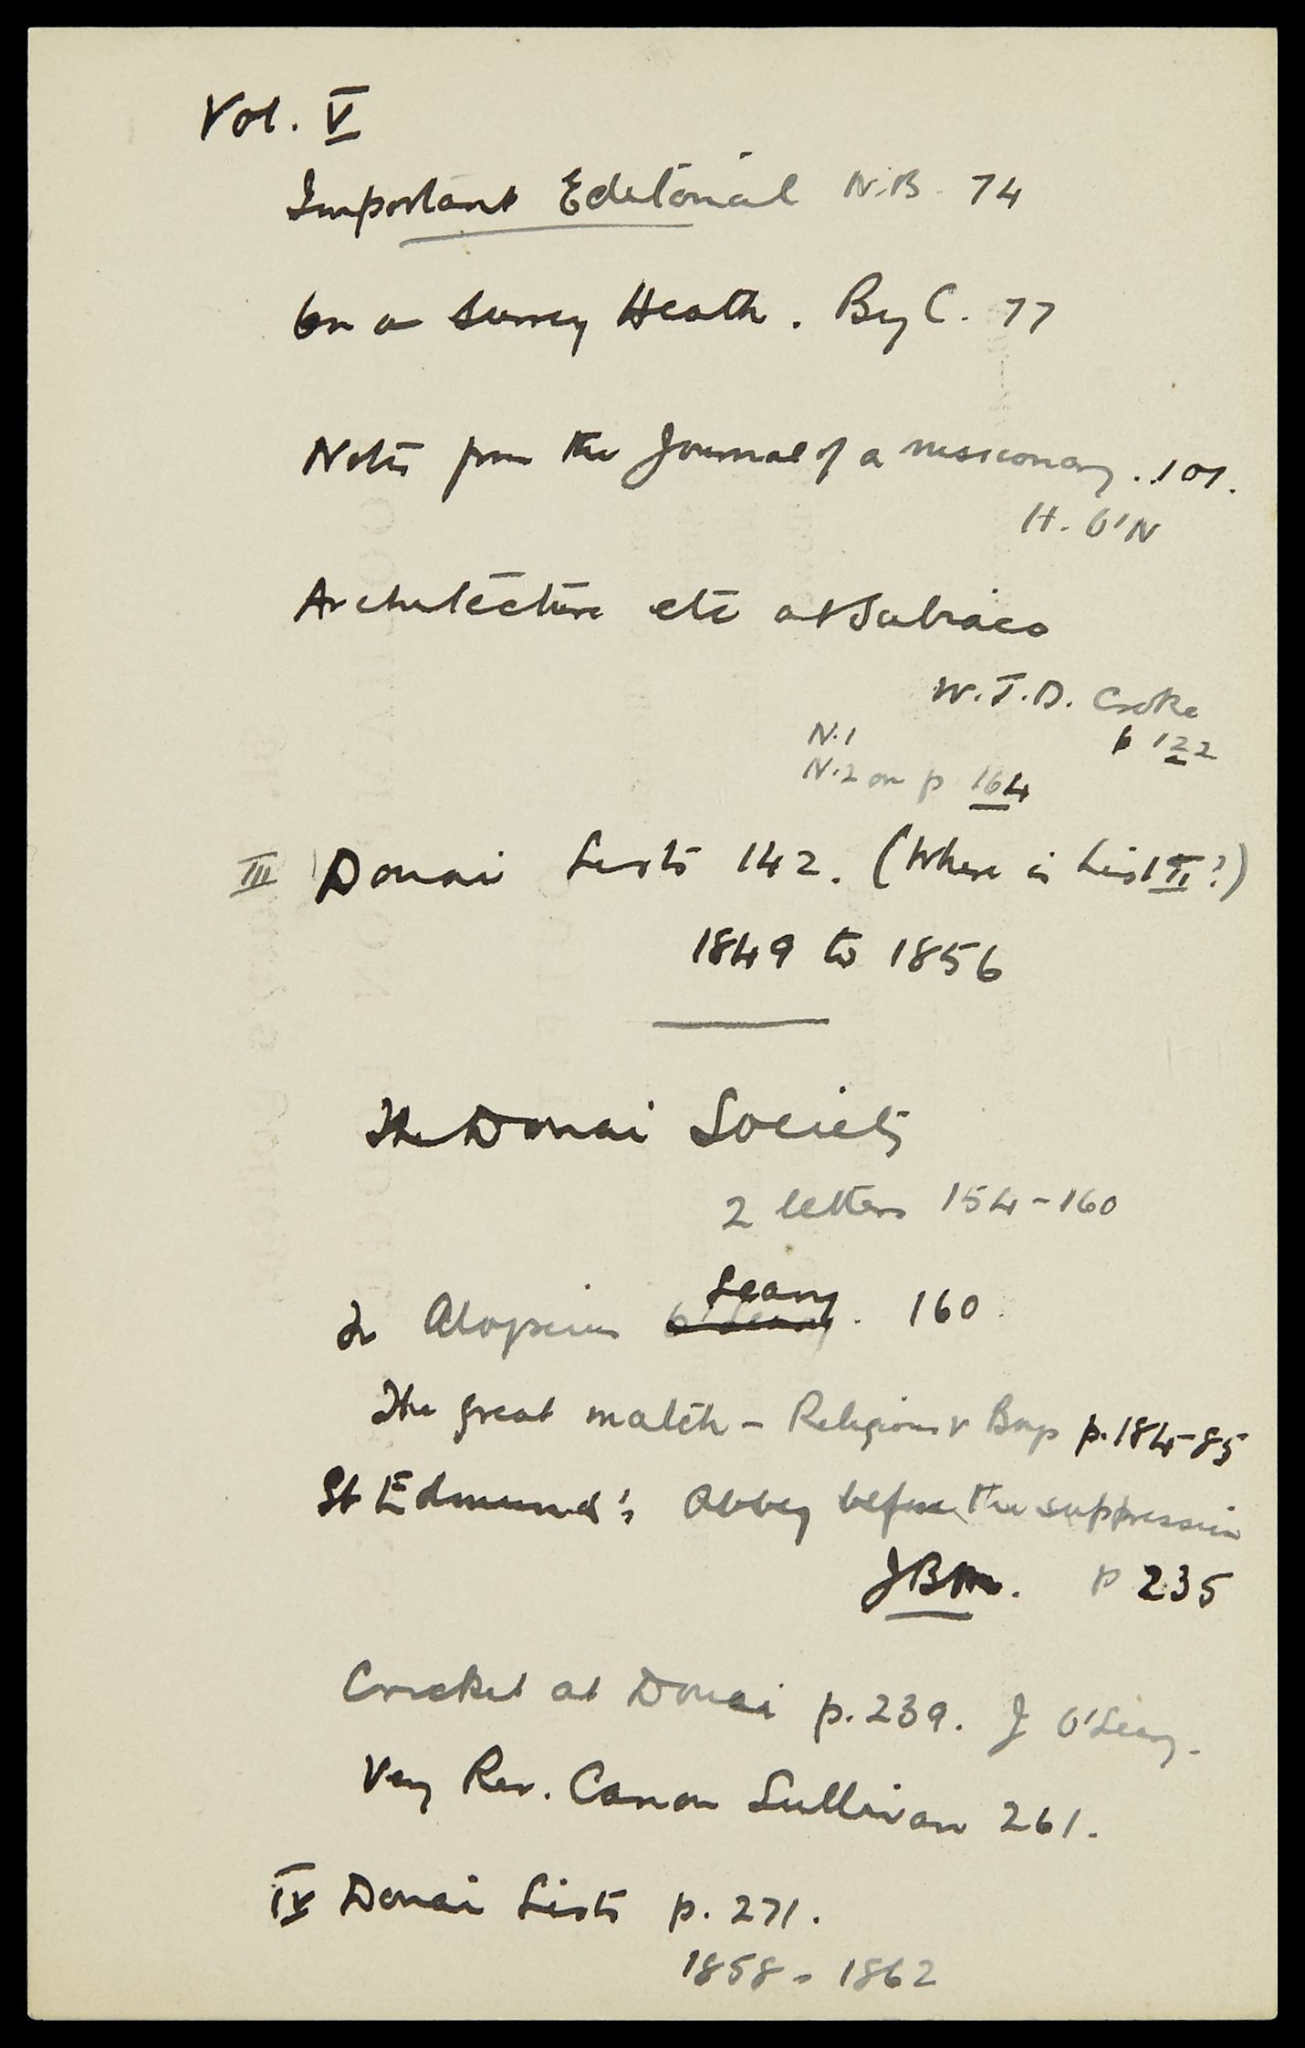 Vol. V
Important Editorial N.B. 74
On a Surrey Heath. By C. 77
Notes from the Journal of a missionary. 101.
H. O'N
Architecture etc at Subiaco
W.J.D. Croke
p 122
N.1
N.2 on p 164
III Douai Lists 142. (Where is List II?)
1849 to 1856
The Douai Society
2 letters 154-160
Leany
Fr Aloysius O'Leary. 160.
The great match - Religious v Boys p. 184-85
St Edmund's Abbey before the suppression
JBM. p 235
Cricket at Douai p. 239. J O'Leary.
Very Rev. Canon Sullivan 261.
IV Douai Lists p. 271.
1858 - 1862